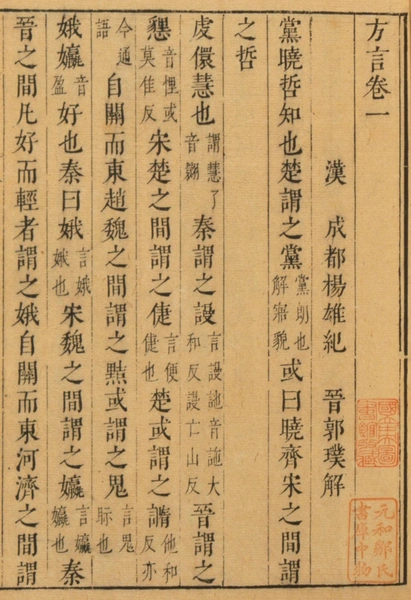 方言卷一
漢 成都楊雄紀 晉郭璞解
黨曉哲知也楚謂之黨黨朗也解寤貌或曰曉齊宋之間謂
之哲
虔儇慧也謂慧了音翾秦謂之謾言謾訑音訑大和反謾亡山反晉謂之
懇音悝或莫佳反宋楚之間謂之倢言便倢也楚或謂之䜏他和反亦
今通語自關而東趙魏之間謂之黠或謂之鬼言鬼眎也
娥㜲音盈好也秦曰娥言娥娥也宋魏之間謂之㜲言㜲㜲也秦
晉之間凡好而輕者謂之娥自關而東河濟之間謂
元和鄒氏